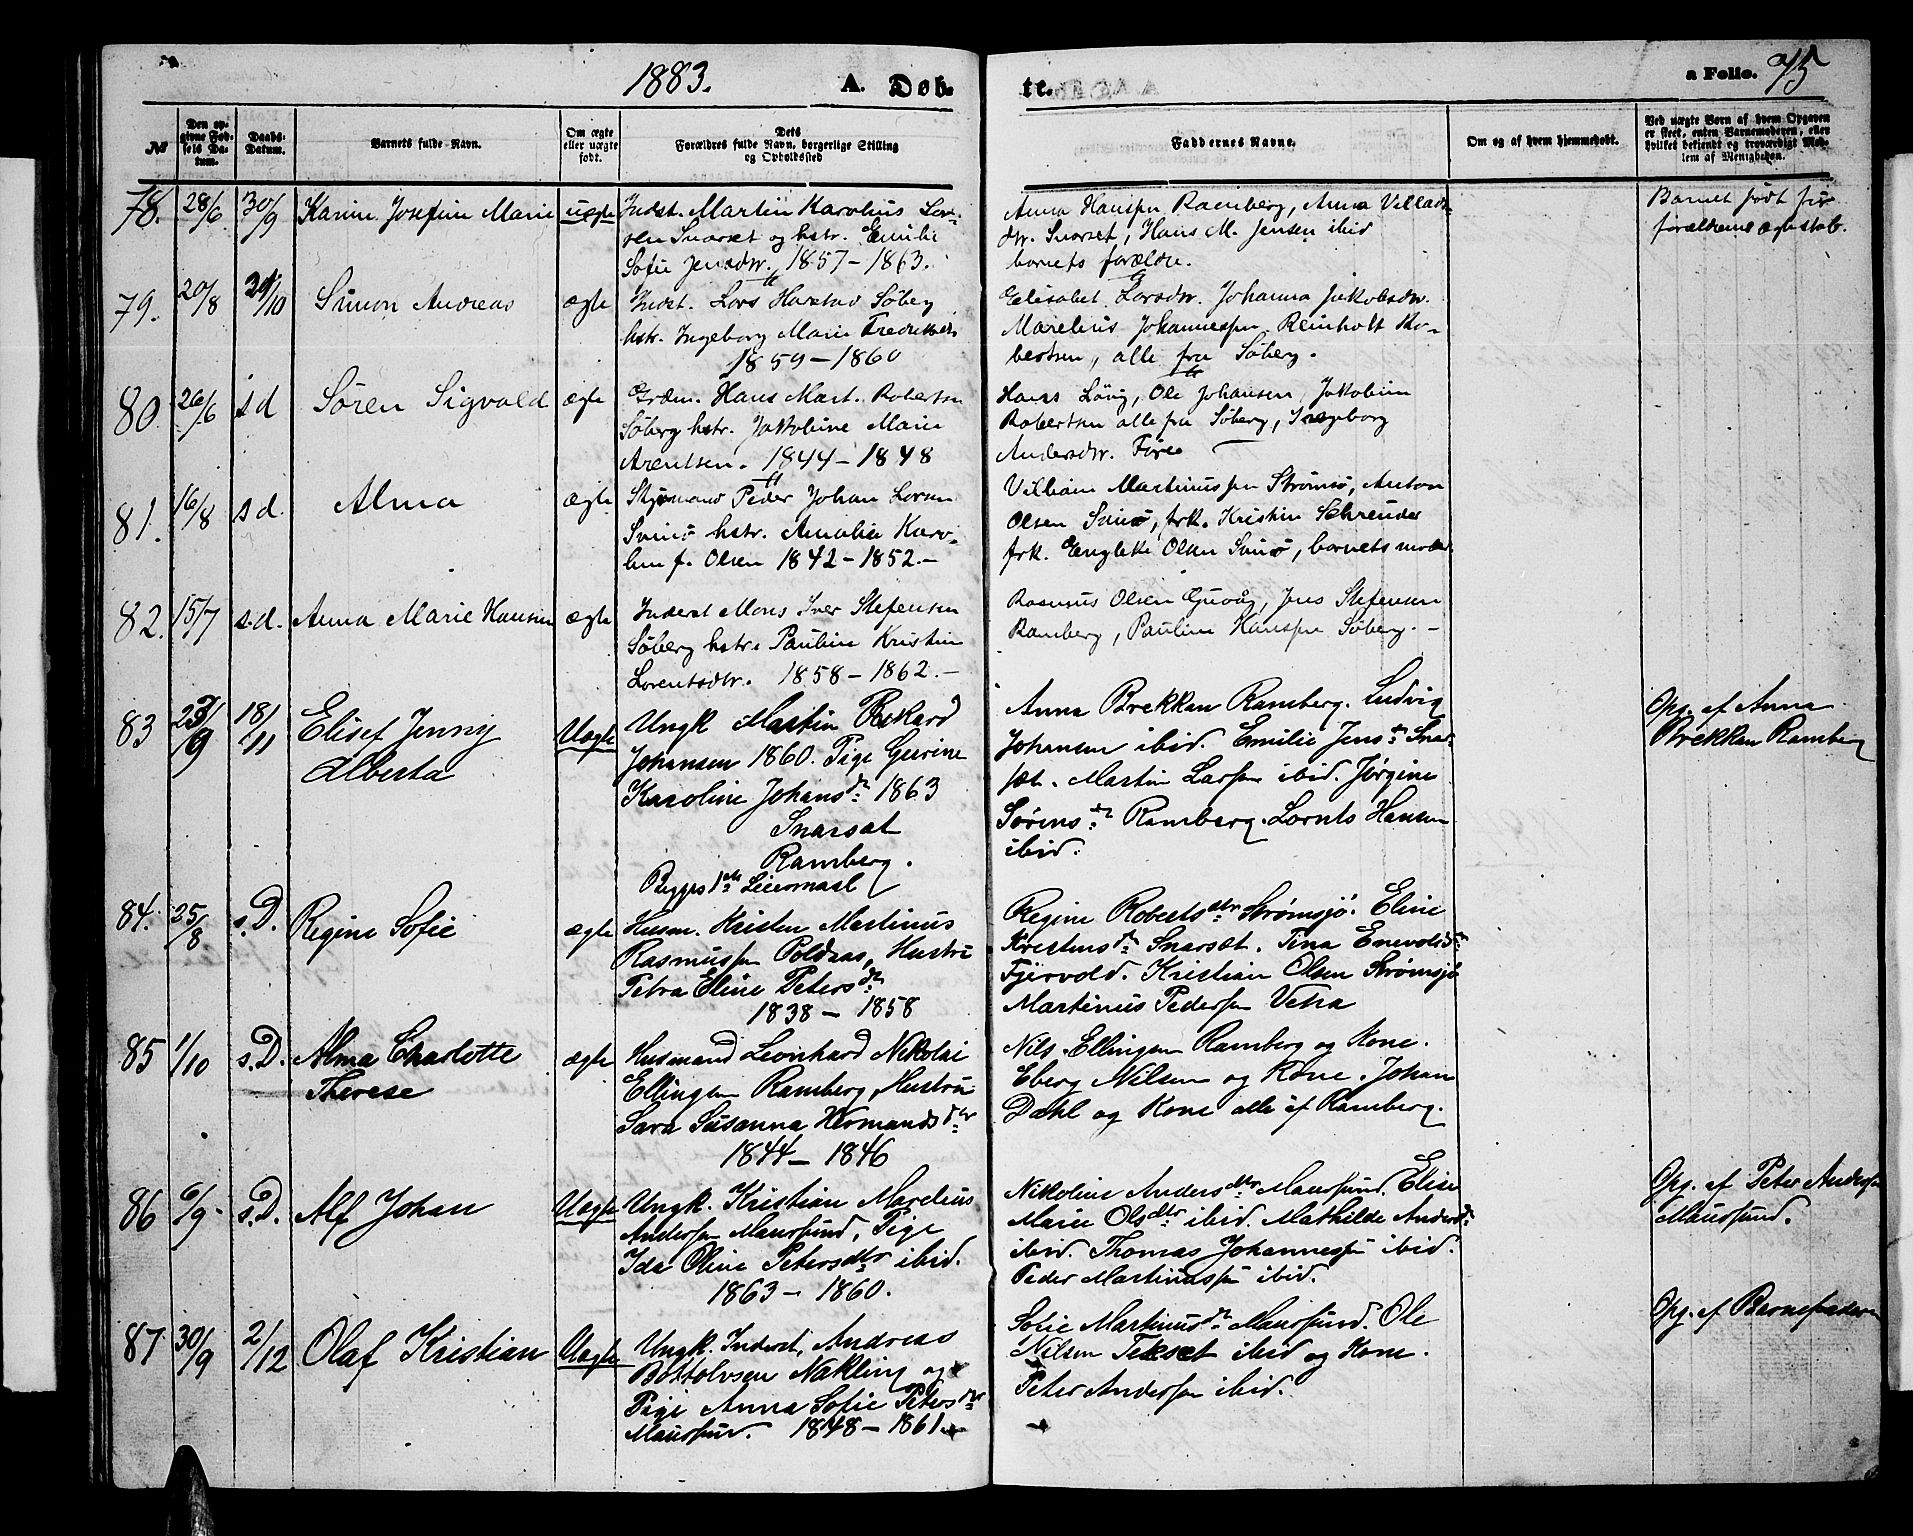 1883.
A. Døb-
te.
a Folio. 75
№
Den op-
givne Fød-
sels Da-
tum.
Daabs-
Datum.
Barnets fulde Navn.
Om ægte
eller uægte
født.
Dets
Forældres fulde Navn, borgerlige Stilling
og Opholdssted
Faddernes Navne.
Om og af hvem hjemmedøbt.
Ved uægte Børn af hvem Opgaven
er skeet, enten Barnemoderen, eller
hvilket bekjendt og troværdigt Med-
lem af Menigheden.
78. 28/6 30/9 Karine Josefine Marie uegte
Indst. Martin Karolius Lor-
sen Snarset og hstr. Emilie
Sofie Jensdtr. 1857-1863.
Anna Hanssen Ramberg, Anna Villads-
dtr. Snarset, Hans M. Jensen ibid
barnets forældre.
Barnet født før
forældrenes egteskab.
79. 20/8 30/10 Simon Andreas ægte
Indst. Lors Harstad Søberg
hstr. Ingeborg Marie Fredriksdtr
1859-1860
Elisabet Larsdtr. Johanna Jakobsdtr.
Marelius Johannessen, Reinholt Ro-
bertsen, alle fra Søberg.
80. 26/6 s d Søren Sigvald ægte
Grdm. Hans Mart. Robertsen
Søberg hstr. Jakobine Marie
Arentsen. 1844-1848
Hans Lövig, Ole Johansen, Jakobine
Robertsen alle fra Søberg, Ingeborg
Andersdtr. Force
81. 16/8 s d. Alma ægte
Styrmand Peder Johan Loren
Svinö hstr. Amalia Karo-
line f. Olsen 1842-1852.-
Vilhelm Martinussen Strömö, Anton
Olsen Svinö, frk. Kristin Schreuder
frk. Englette Olsen Svinö, barnets moder
82. 15/7 s.d. Anna Marie Hansine ægte
Inderst Mons Iver Stefensen
Søberg hstr. Pauline Kristine
Lorentsdtr. 1858-1862.-
Rasmus Olsen Guvåg, Jens Stefensen
Ramberg, Pauline Hanssen Søberg.-
83 23/9 18/11 Elisef Jenny
Alberta
Uægte
Ungk Martin Rikard
Johansen 1860. Pige Gurine
Karoline Johansdr 1863
Snarsat
Ramberg.
Begges 1ste Leiermaal
Anna Brekkan Ramberg. Ludvig
Johansen ibid. Emilie Jensdr Snar-
set. Martin Larsen ibid. Jørgine
Sørensdr Ramberg. Lornts Hansen
ibid.
Opg. af Anna
Brekkan Ramberg
84. 25/8 s.D. Regine Sofie ægte
Husm. Kristen Martinus
Rasmussen Poldras, Hustru
Petra Eline Petersdr
1838 - 1858
Regine Robertsdtr Strømsjø. Eline
Kristensdr Snarsæt. Tina Enevoldsdr
Fjervold. Kristian Olsen Strømsjø
Martinus Pedersen Vena
85 1/10 s.D. Alma Charlotte
Therese
ægte
Husmand Leonhard Nikolai
Ellingsen Ramberg, Hustru
Sara Susanna Hermandsdtr
1844 - 1846
Nils Ellingsen Ramberg og Kone.
Eberg Nilsen og Kone. Johan
Dahl og Kone alle af Ramberg.
86 6/9 s.D. Alf Johan Uægte
Ungk. Kristian Marelius
Andersen Maursund, Pige
Ida Oline Petersdtr ibid.
1863 - 1860.
Nikoline Andersdtr Maursund. Elise
Marie Olsdtr ibid. Mathilde Andersdr
ibid. Thomas Johannessen ibid.
Peder Martinussen ibid.
Opg. af Peter Andersen
Maursund.
87 30/9 2/12 Olaf Kristian Uægte
Ungk. Inderst, Andreas
Bottolvsen Nakling og
Pige Anna Sofie Petersdtr
Maursund. 1848 - 1861.
Sofie Martinusdr Maursund. Ole
Nilsen Tekset ibid og Kone.
Peter Andersen ibid.
Opg. af Barnefaderen